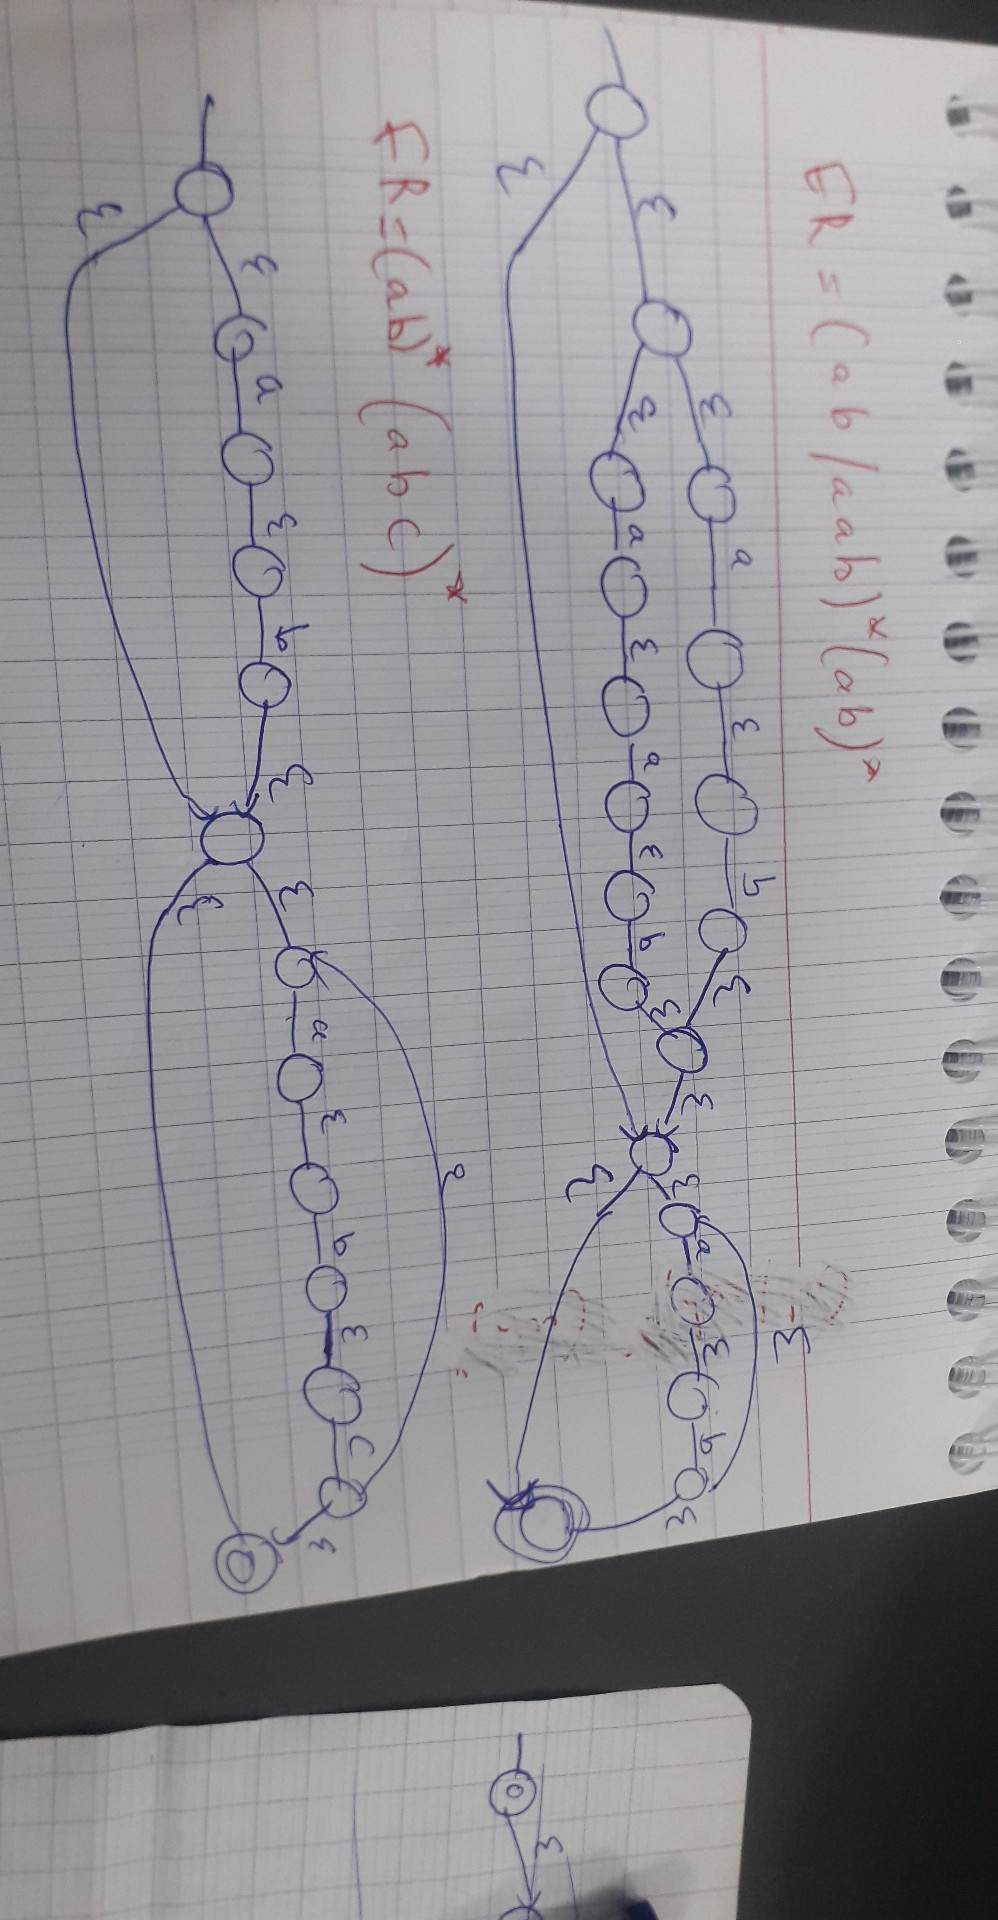 ER = (ab/aab)*(ab)*
ε
ε a ε b ε
ε
ε a ε a ε b ε
ε
ε
ε a ε b ε
ε
ε
ER = (ab)* (abc)*
ε
ε a ε b ε
ε
ε a ε b ε c ε
ε
ε